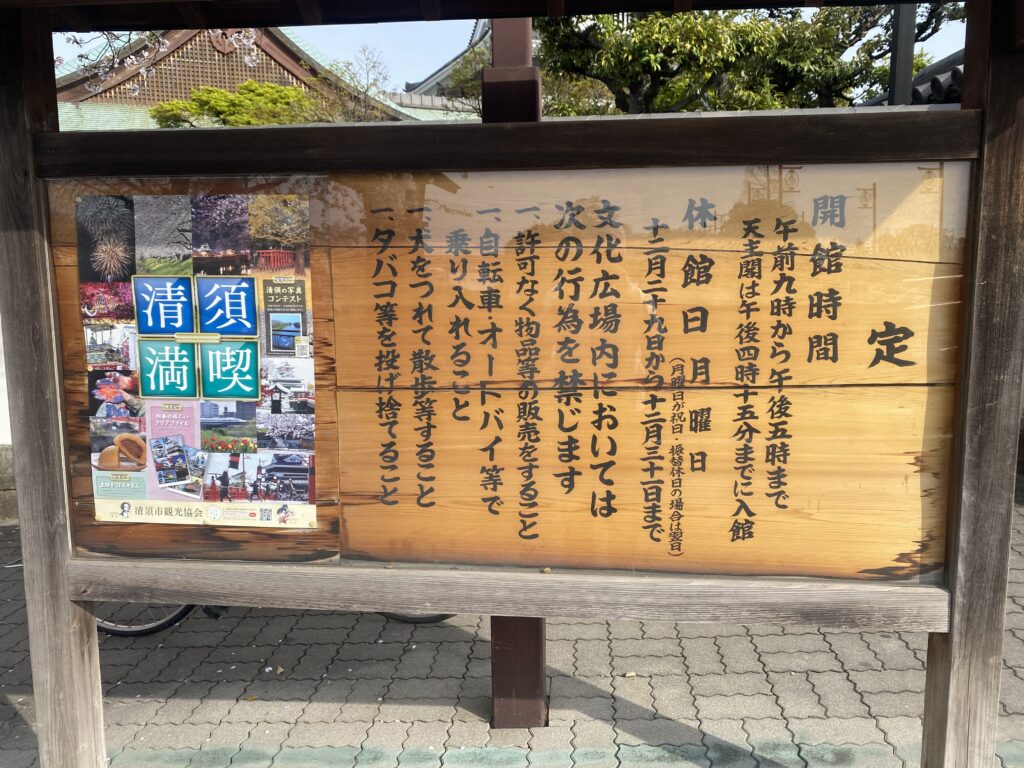 定
開館時間
午前九時から午後五時まで
天主閣は午後四時十五分までに入館
休館日 月曜日
(月曜日が祝日・振替休日の場合は翌日)
十二月二十九日から十二月三十一日まで
文化広場内においては
次の行為を禁じます
一、許可なく物品等の販売をすること
一、自転車オートバイ等で
乗り入れること
一、犬をつれて散歩等すること
一、タバコ等を投げ捨てること
清須
満喫
清須の写真
コンテスト
四季の織りたい
クリアファイル
清須市観光協会